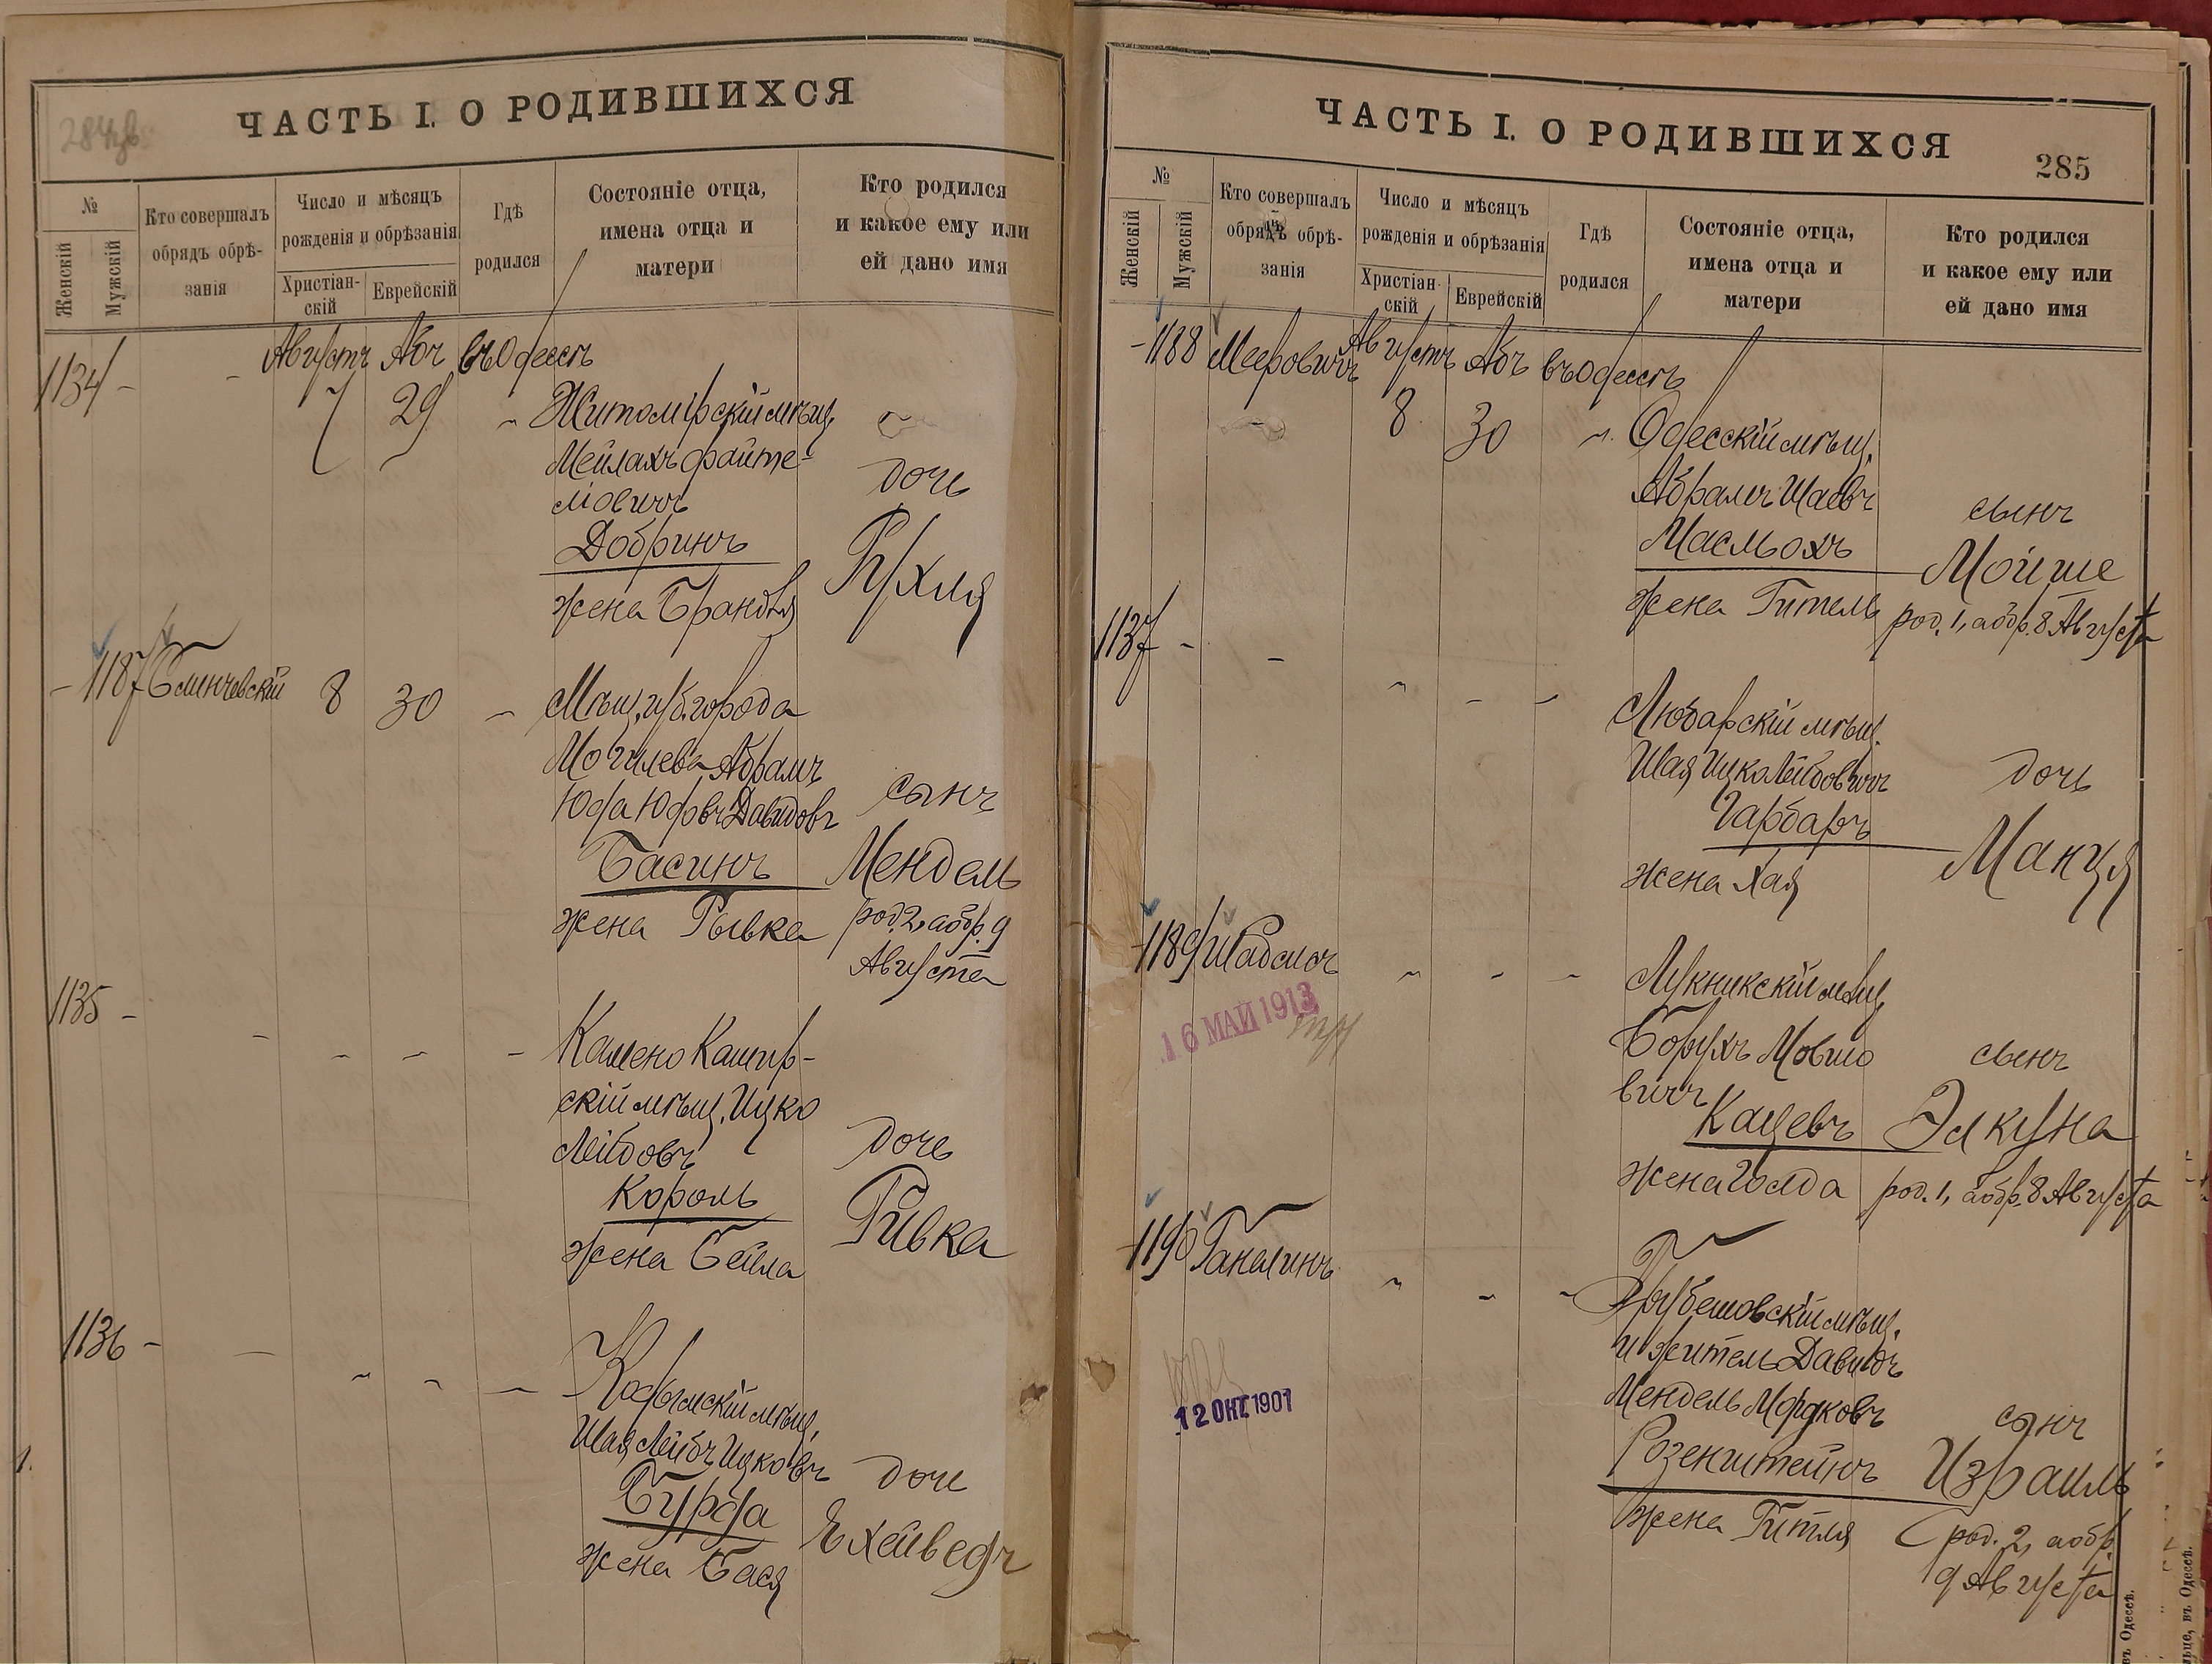 ЧАСТЬ I. О РОДИВШИХСЯ
№
Женскій
Мужскій
Кто совершалъ
обрядъ обрѣ-
занія
Число и мѣсяцъ
рожденія и обрѣзанія
Христіан-
скій
Еврейскій
Гдѣ
родился
Состояніе отца,
имена отца и
матери
Кто родился
и какое ему или
ей дано имя
Августъ Абъ въ Одессѣ
1134 - - 7 29 " Житомірскій мѣщ.
Мейлахъ Файте-
ліовичъ
Добринъ
жена Брандля
дочь
Рухля
- 1187 8 30 " Мѣщ. губ. города
Могилева Абрамъ
Юфа Юфовъ Давидовъ
Басинъ
жена Рывка
сынъ
Мендель
род. 2, а обр. 9
Августа
1135 - - " " " Камено Кашир-
скій мѣщ. Ицко
Лейбовъ
Король
жена Бейла
дочь
Ривка
1136 - - " " "
Шая Лейбъ Ицковъ
Бурда
жена Бася
дочь
ЧАСТЬ I. О РОДИВШИХСЯ
285
№
Женскій
Мужскій
Кто совершалъ
обрядъ обрѣ-
занія
Число и мѣсяцъ
рожденія и обрѣзанія
Христіан-
скій
Еврейскій
Гдѣ
родился
Состояніе отца,
имена отца и
матери
Кто родился
и какое ему или
ей дано имя
- 1188 Меровичъ Августъ Абъ въ Одессѣ
8 30 " Одесскій мѣщ.
Абрамъ Шаевъ
Масльохъ
жена Гитель
сынъ
Мойше
род. 1, а обр. 8 Августа
1137 - - " " "
Любарскій мѣщ.
Шая Ицко Лейбовичъ
Гарбаръ
жена Хая
дочь
Манця
- 1189 " " " Лукникскій мѣщ.
Борухъ Мовшо
вичъ
Кацевъ
жена Голда
сынъ
Элкуна
род. 1, а обр. 8 Августа
16 МАЙ 1913
- 1190 Ганелинъ " " " Грубешовскій мѣщ.
и житель Давидъ
Мендель Мордковъ
Розенштейнъ
жена Гитля
сынъ
Израиль
род. 2, а обр.
9 Августа
12 ОКТ 1901
въ Одессѣ.
въ Одессѣ.